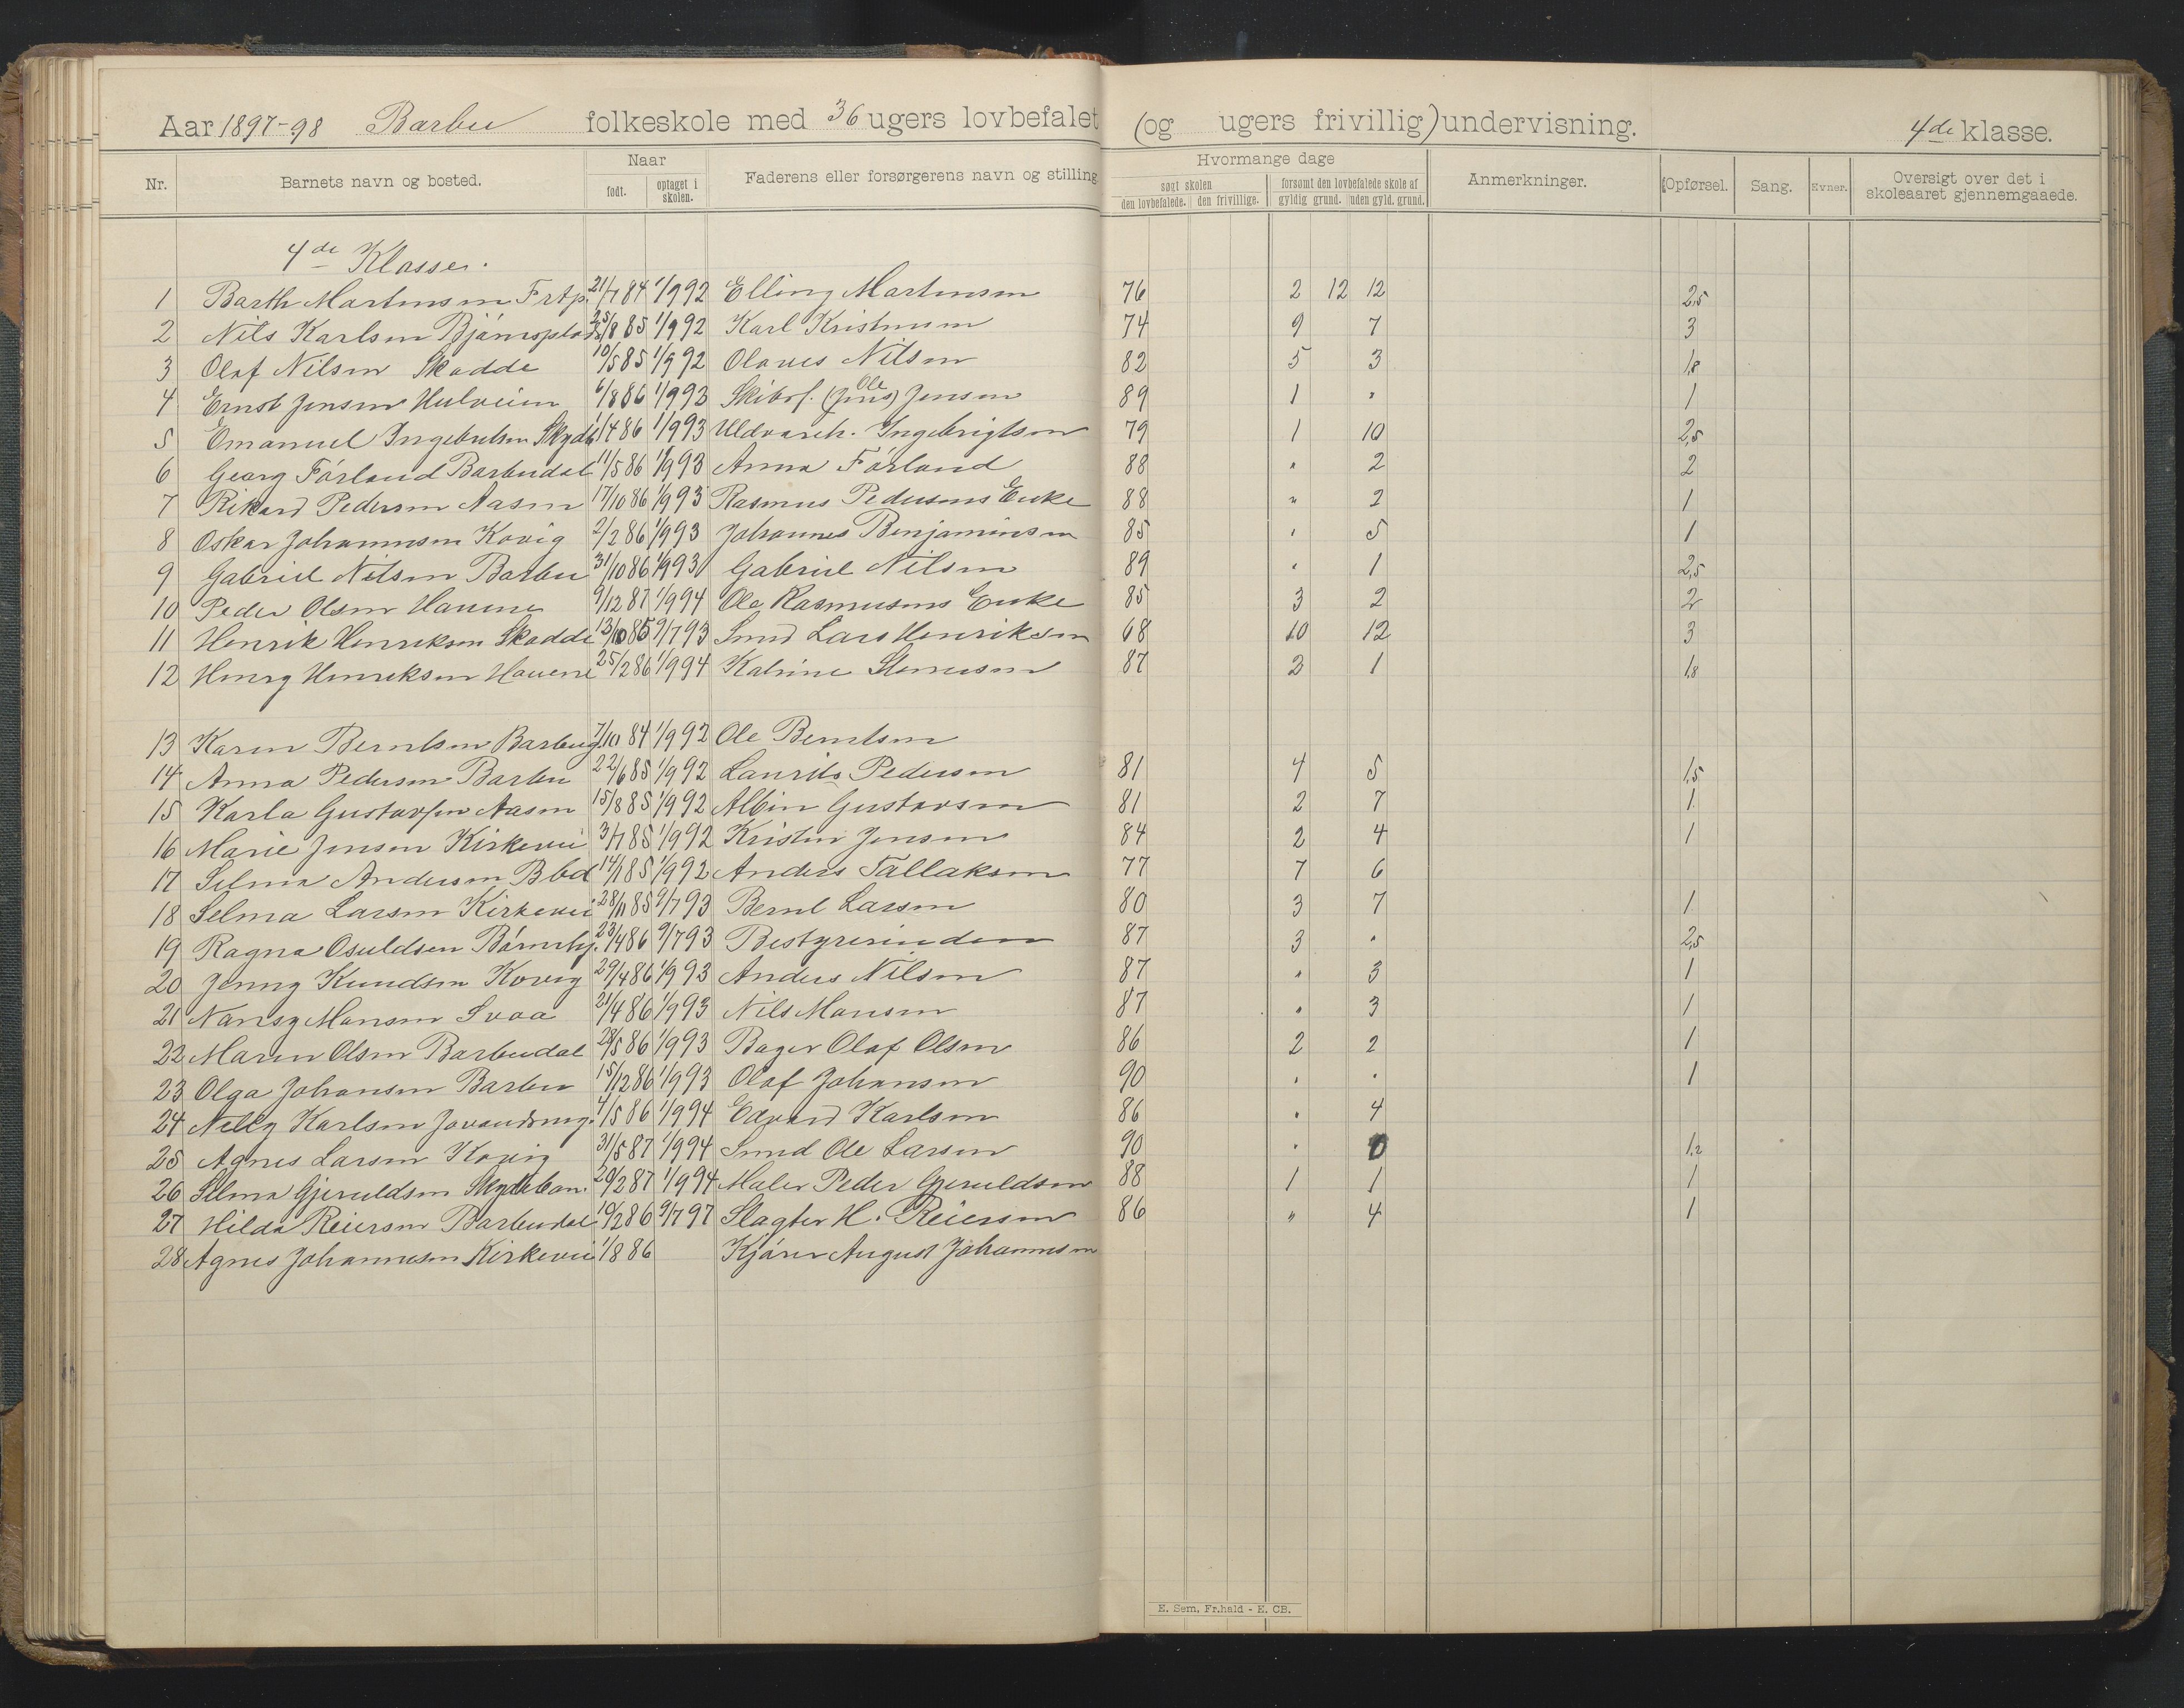 Aar 1897-98 Barbu folkeskole med 36 ugers lovbefalet (og ugers frivillig) undervisning. 4de klasse.
Nr. Barnets navn og bosted. Naar født. optaget i skolen. Faderens eller forsørgerens navn og stilling Hvormange dage søgt skolen den lovbefalede. den frivillige. forsømt den lovbefalede skole af gyldig grund. uden gyld. grund. Anmerkninger. Opførsel. Sang. Evner. Oversigt over det i skoleaaret gjennemgaaede.
4de Klasse.
1 Barth Martinsen 21/7 84 1/9 92 Elling Martinsen 76 2 12 12 2,5
2 Nils Karlsen 25/8 85 1/9 92 Karl Kristensen 74 9 7 3
3 Olaf Nilsen Skadde 10/5 85 1/9 92 Olaves Nilsen 82 5 3 1,8
4 Ernst Jensen 6/8 86 1/9 93 Skibsf. (Jens) Ole Jensen 89 1 " 1
5 Emanuel Ingebretsen 1/4 86 1/9 93 Ingebrigtsen 79 1 10 2,5
6 Georg Førland Barbudal 11/5 86 1/9 93 Anna Førland 88 " 2 2
7 Rikard Pedersen Aasen 17/10 86 1/9 93 Rasmus Pedersens Enke 88 " 2 1
8 Oskar Johannesen Kovig 2/2 86 1/9 93 Johannes Benjaminsen 85 " 5 1
9 Gabriel Nilsen Barbu 31/10 86 1/9 93 Gabriel Nilsen 89 " 1 2,5
10 Peder Olsen Havene 9/12 87 1/9 94 Ole Rasmusens Enke 85 3 2 2
11 Henrik Henriksen Skadde 13/10 85 9/7 93 Smed Lars Henriksen 68 10 12 3
12 Henry Henriksen Havene 25/2 86 1/9 94 Katrine 87 2 1 1,8
13 Karen Berntsen 7/10 84 1/9 92 Ole Berntsen
14 Anna Pedersen Barbu 22/6 85 1/9 92 Laurits Pedersen 81 4 5 1,5
15 Karla Gustavsen Aasen 15/8 85 1/9 92 Albin Gustavsen 81 2 7 1
16 Marie Jensen Kirkevei 3/7 85 1/9 92 Kristen Jensen 84 2 4 1
17 Selma Andersen Bbd 85 1/9 92 Anders Tallaksen 77 7 6
18 Selma Larsen Kirkevei 28/11 85 9/7 93 Bernt Larsen 80 3 7 1
19 Ragna Osuldsen Børnehj. 23/4 86 9/7 93 Bestyrerinden 87 3 " 2,5
20 Jenny Knudsen Kovig 29/4 86 1/9 93 Anders Nilsen 87 " 3 1
21 Nansy Monsen Svaa 21/4 86 1/9 93 Nils Monsen 87 " 3 1
22 Maren Olsen Barbudal 28/5 86 1/9 93 Bager Olaf Olsen 86 2 2 1
23 Olga Johansen Barbu 15/12 86 1/9 93 Olaf Johansen 90 " " 1
24 Nelly Karlsen 4/5 86 1/9 94 Edvard Karlsen 86 " 4
25 Agnes Larsen Kovig 31/5 87 1/9 94 Smed Ole Larsen 90 " 0 1,2
26 Selma Gjeruldsen 29/2 87 1/9 94 Maler Peder Gjeruldsen 88 1 1 1
27 Hilda Reiersen Barbudal 10/2 86 9/7 97 Slagter H. Reiersen 86 " 4 1
28 Agnes Johannesen Kirkevei 1/8 86 Kjører August Johannesen
E. Sem, Fr.hald - E. CB.